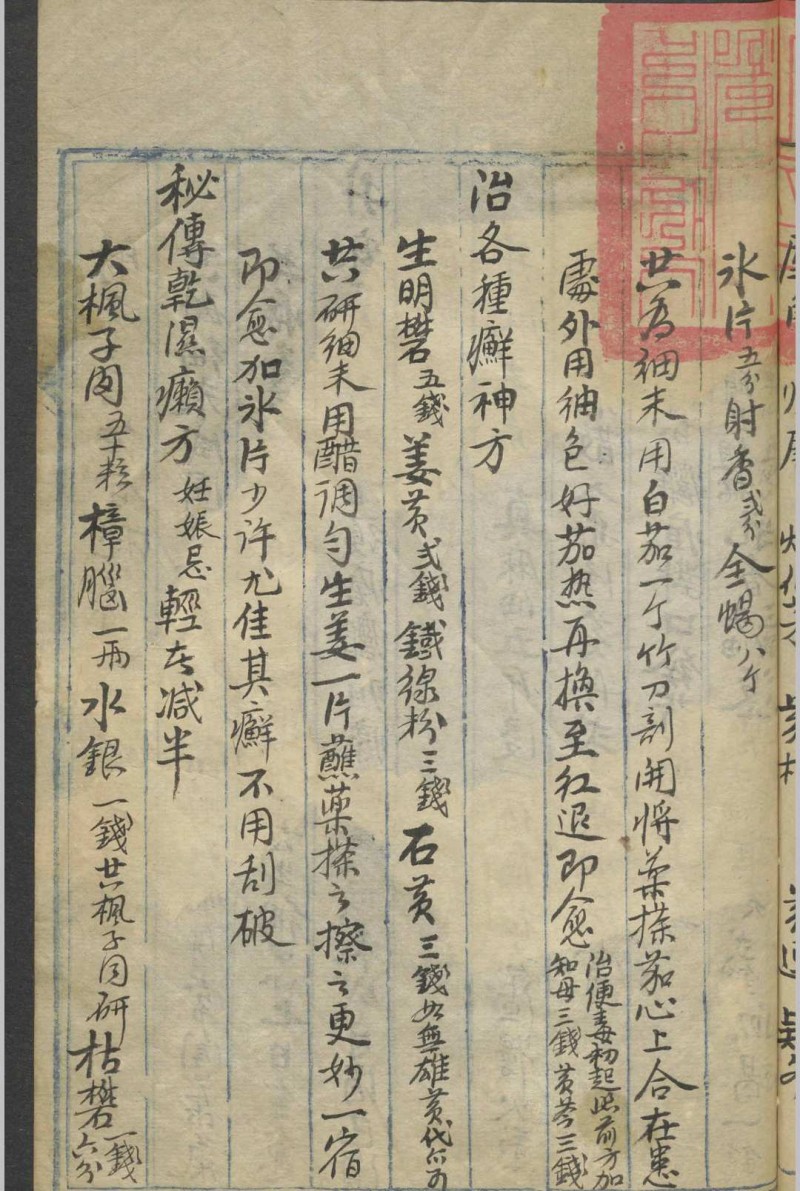 氷片五分射香弍分全蝎八个
共為細末用白茄一个竹刀剖開將藥搽茄心上合在患
處外用紬包好茄热再換至紅退即愈治便毒初起照前方加
知母三錢黄芩三錢
治各種癬神方
生明礬五錢姜黄弍錢鐵線粉三錢石黄三錢如無雄黄代亦可
共研細末用醋調勻生姜一片蘸藥搽之擦之更妙一宿
即愈加氷片少許尤佳其癬不用刮破
秘傳乾濕癩方妊娠忌輕者减半
大楓子肉五十粒樟腦一兩水銀一錢共楓子同研枯礬一錢
六分